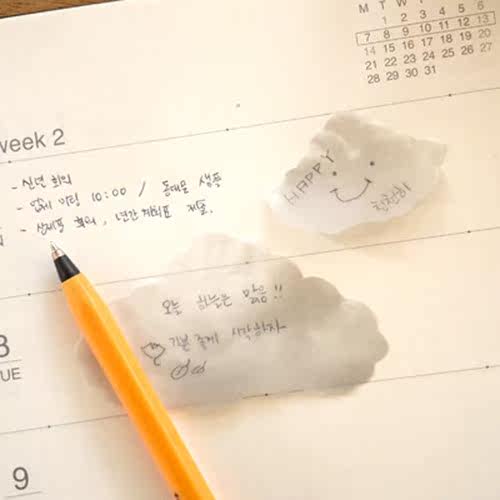 M T W
1 2 3 4 5 6
7 8 9 10 11 12 13
14 15 16 17 18 19 20
21 22 23 24 25 26 27
28 29 30 31
week 2
- 신년 회의
- 업체 미팅 10:00 / 동대문 샘플
- 신제품 회의, 년간 계획표 제출.
HAPPY
천천히
오늘 하늘은 맑음!!
기분 좋게 시작하자
8
TUE
9